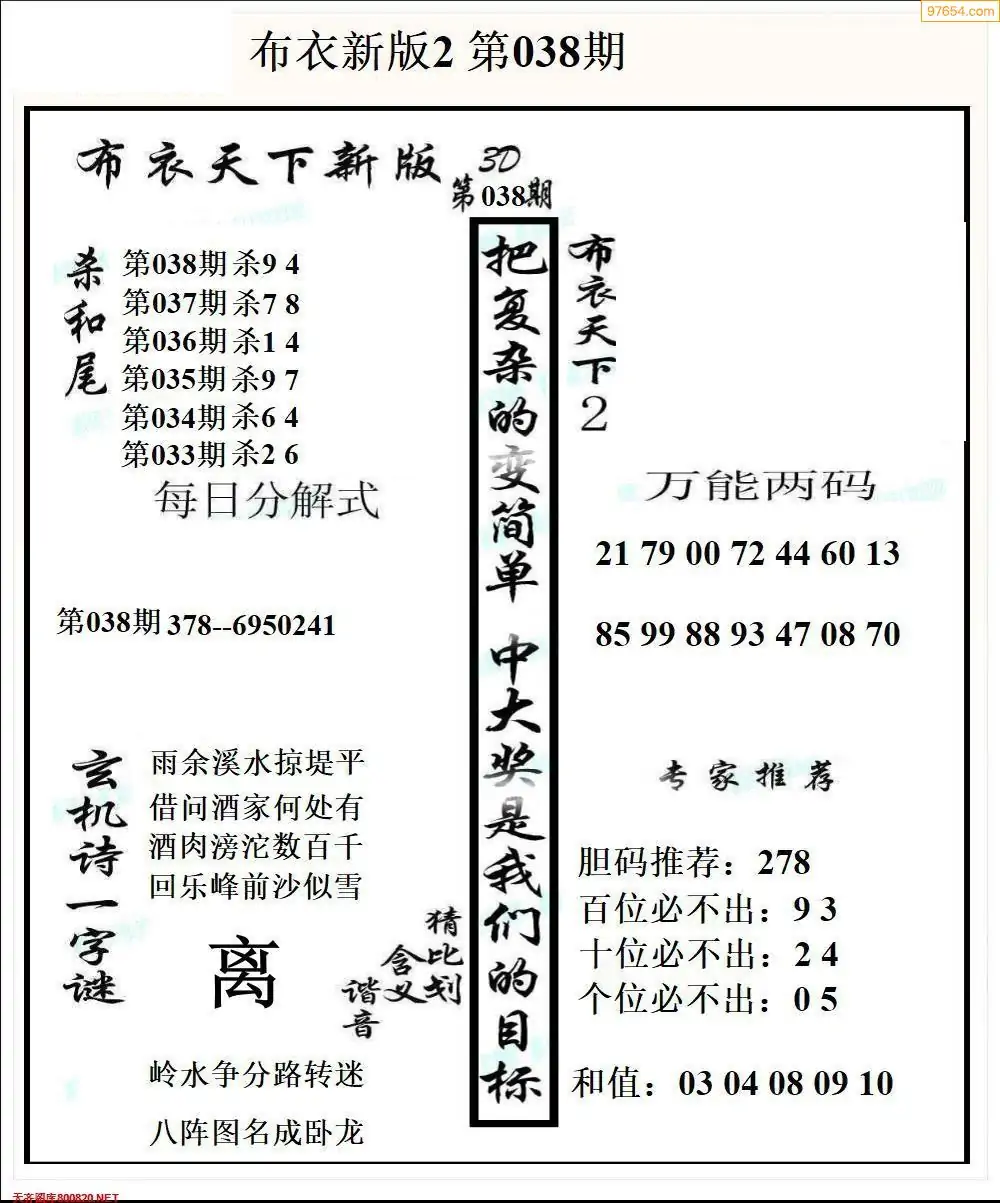 97654.com
布衣新版2 第038期
布衣天下新版
3D
第038期
杀和尾
第038期杀9 4
第037期杀7 8
第036期杀1 4
第035期杀9 7
第034期杀6 4
第033期杀2 6
每日分解式
第038期 378--6950241
把复杂的变简单 中大奖是我们的目标
布衣天下2
万能两码
21 79 00 72 44 60 13
85 99 88 93 47 08 70
玄机诗一字谜
雨余溪水掠堤平
借问酒家何处有
酒肉滂沱数百千
回乐峰前沙似雪
离
猜比划
含义
谐音
岭水争分路转迷
八阵图名成卧龙
专家推荐
胆码推荐：278
百位必不出：9 3
十位必不出：2 4
个位必不出：0 5
和值：03 04 08 09 10
天齐图库800820.NET